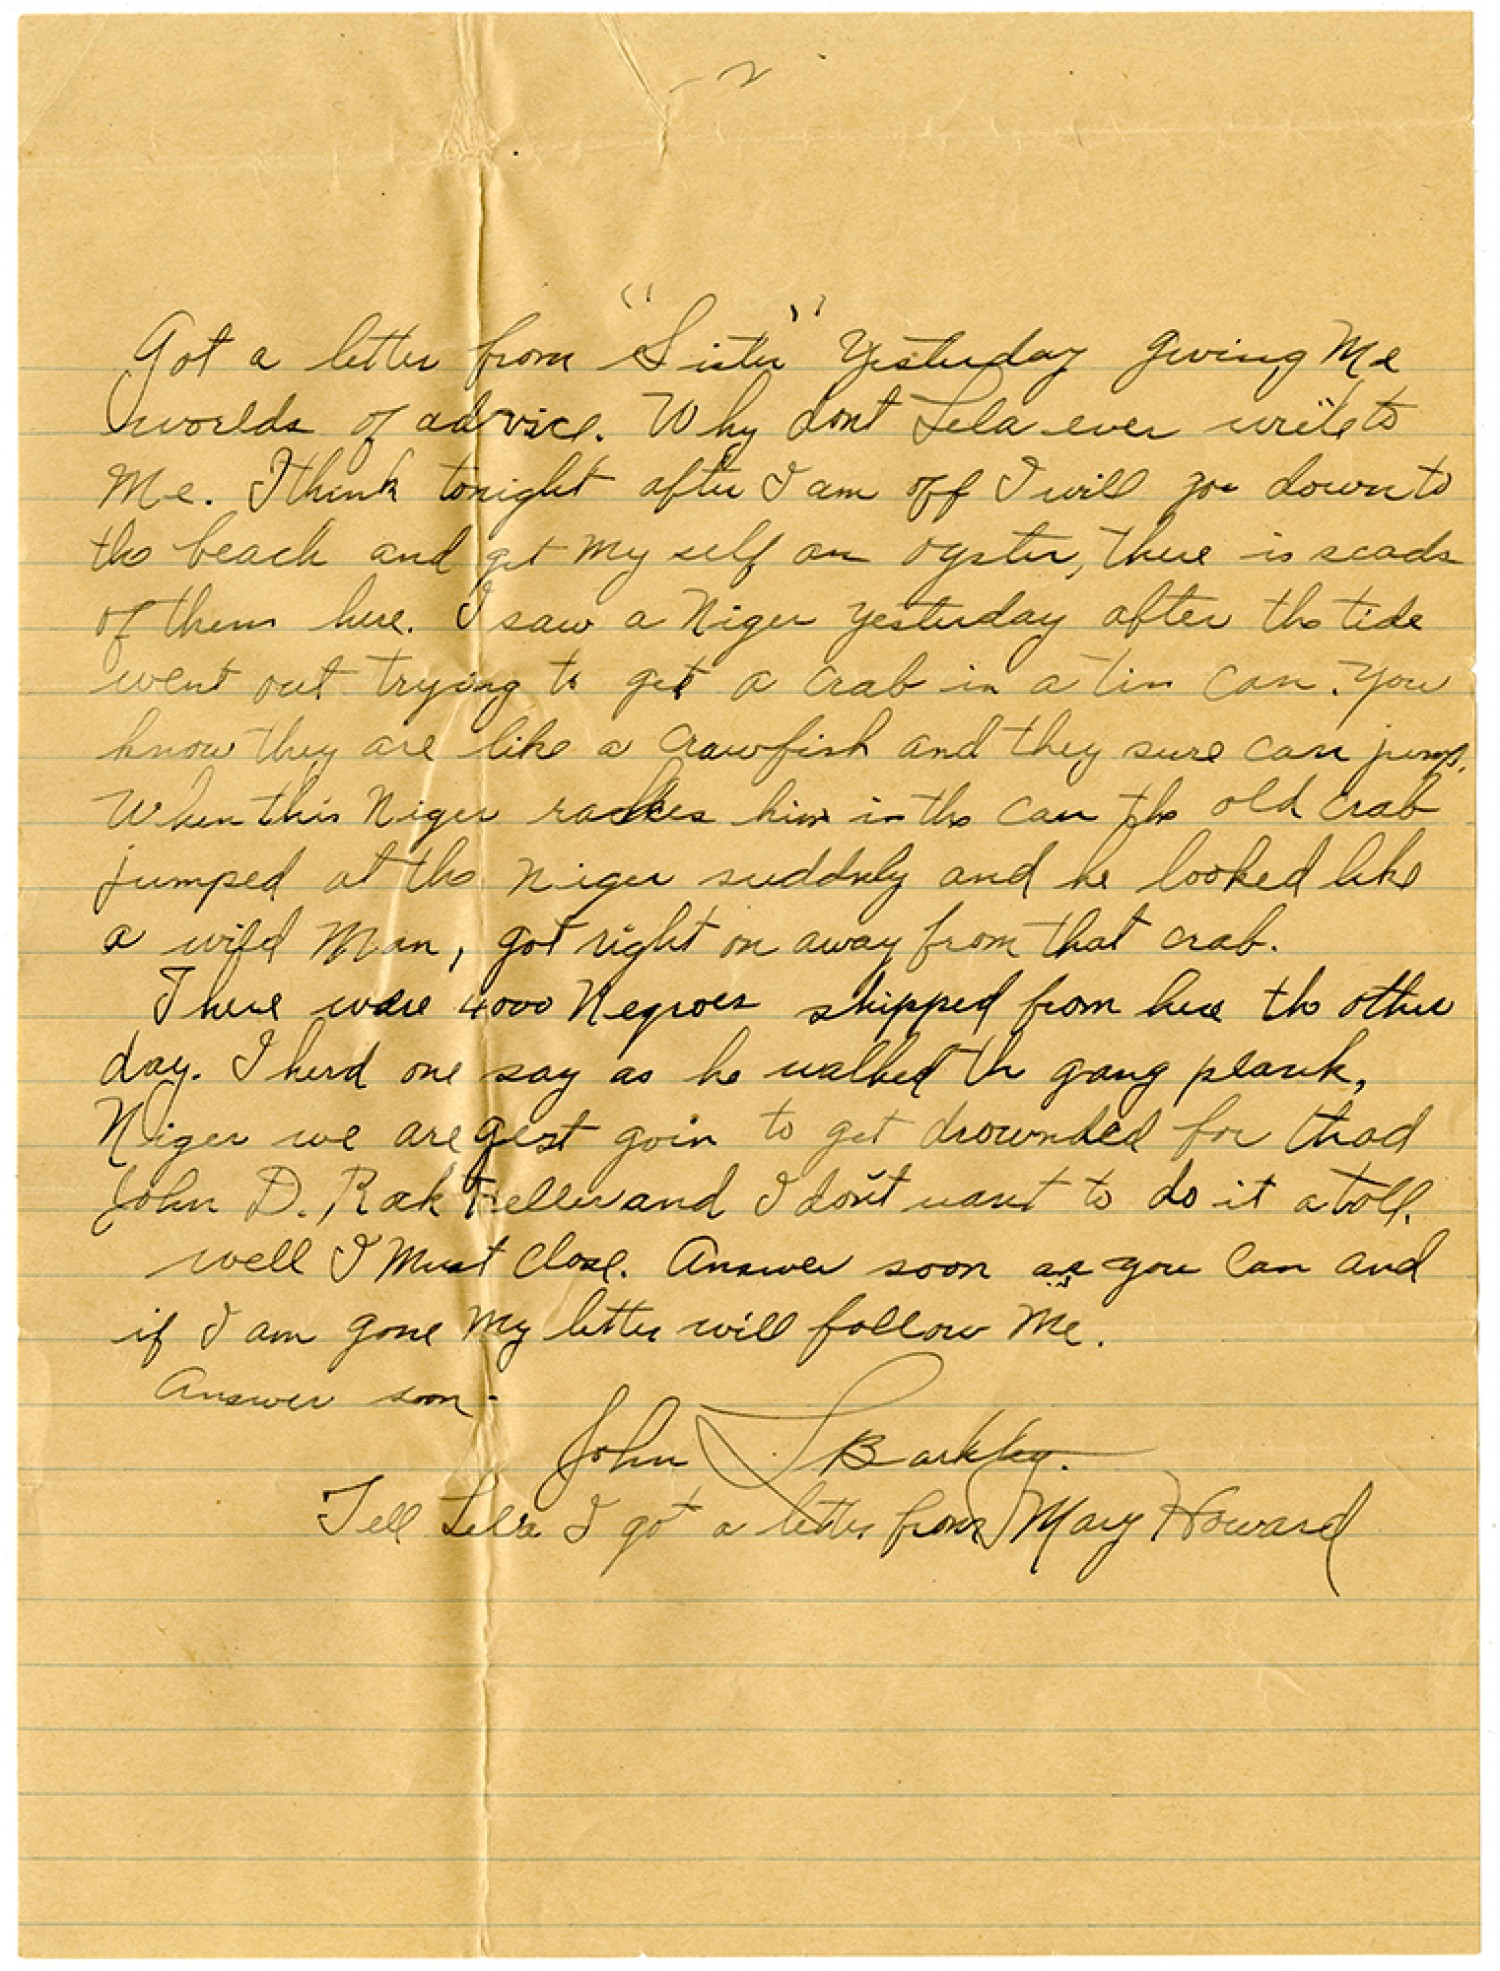 - 2
Got a letter from "Sister" Yesterday giving Me
worlds of advice. Why dont Lela ever write to
Me. I think tonight after I am off I will go down to
the beach and get my self an oyster, there is scads
of them here. I saw a Niger yesterday after the tide
went out trying to get a crab in a tin can. You
know they are like a crawfish and they sure can jump.
When this Niger him in the can the old crab
jumped at the Niger suddnly and he looked like
a wild Man, got right on away from that crab.
There were 4000 Negroes shipped from here the other
day. I herd one say as he walked th gang plank,
Niger we are gest goin to get drownded for thad
John D. Rock feller and I don't want to do it atoll.
well I Must close. Answer soon as you can and
if I am gone My letter will follow Me.
Answer soon -
John L Barkley.
Tell Lela I got a letter from Mary Howard